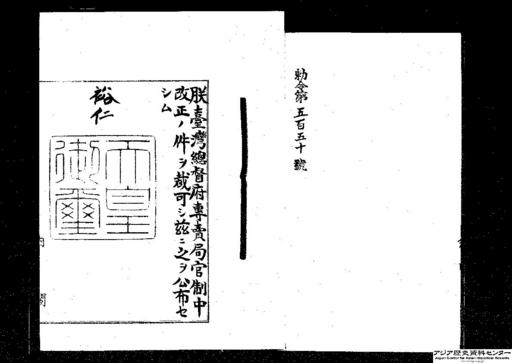 勅令第五百五十號
朕臺灣總督府專賣局官制中
改正ノ件ヲ裁可シ茲ニ之ヲ公布セ
シム
裕仁
天皇
御璽
内
閣
アジア歴史資料センター
Japan Center for Asian Historical Records